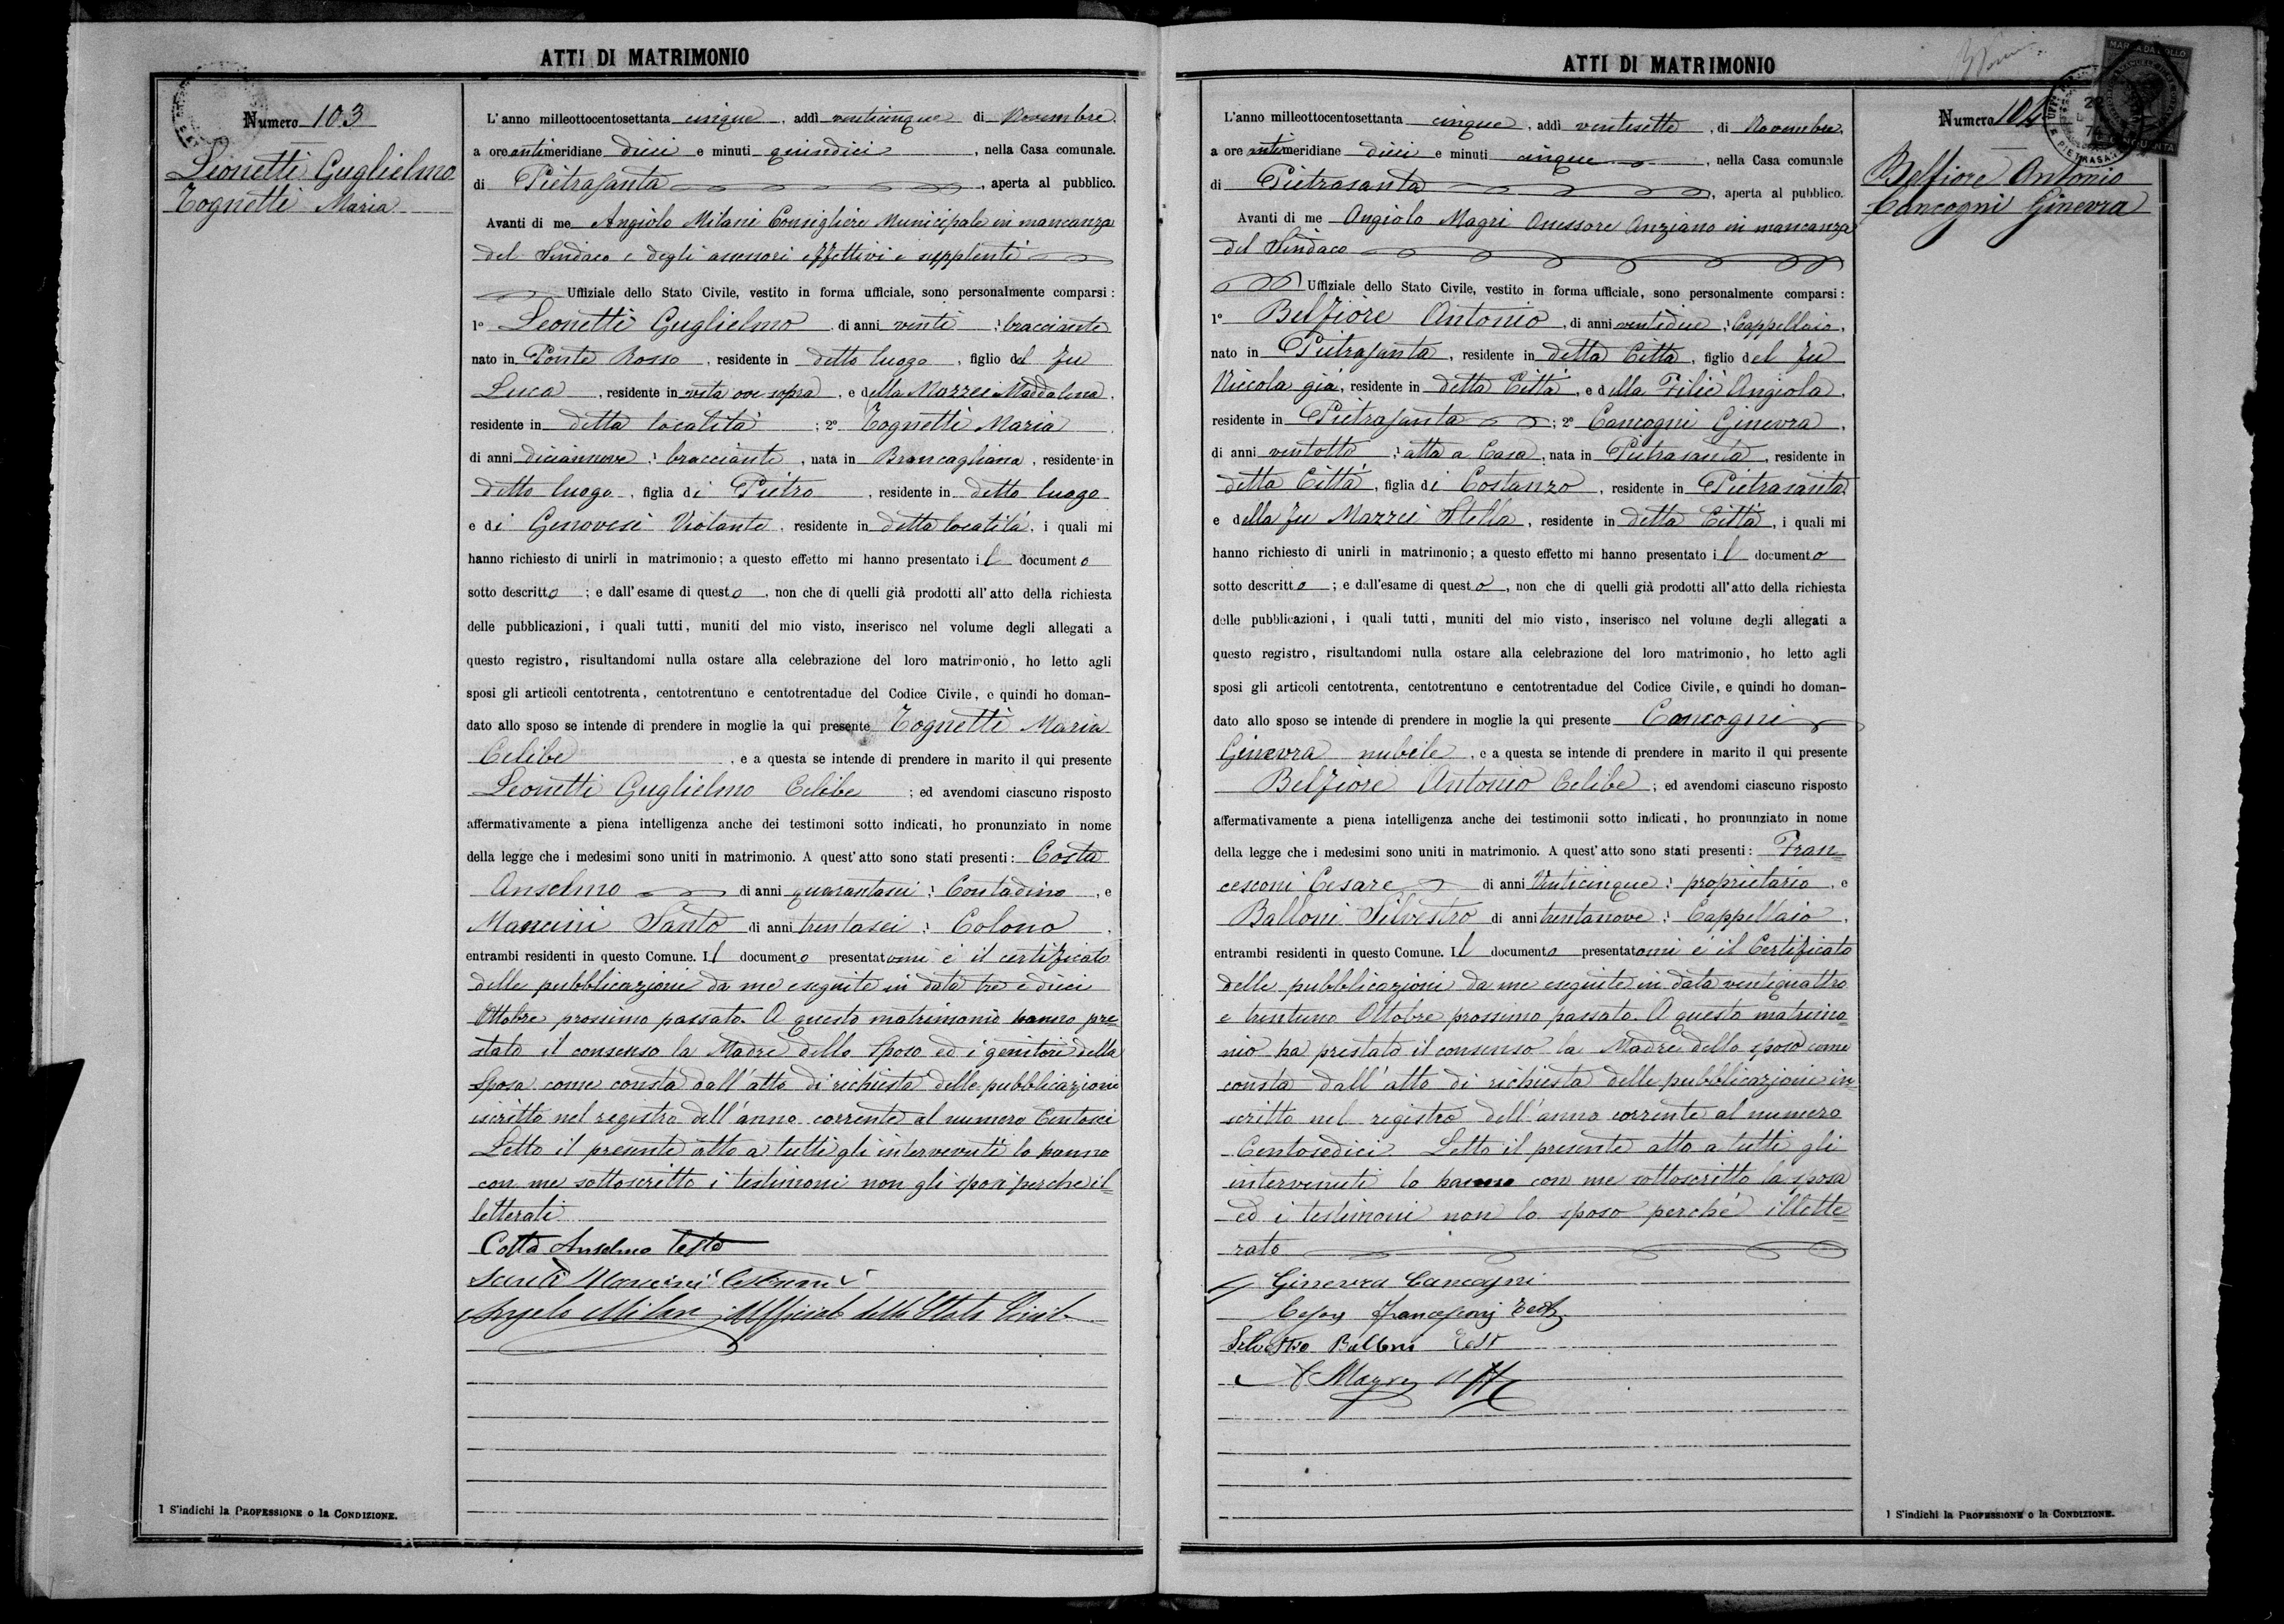 ATTI DI MATRIMONIO
Numero 103
Lionetti Guglielmo
Tognetti Maria
L'anno milleottocentosettanta cinque, addì venticinque di Novembre,
a ore antimeridiane dieci e minuti quindici, nella Casa comunale.
di Pietrasanta, aperta al pubblico.
Avanti di me Angiolo Milani Consigliere Municipale in mancanza
del Sindaco e degli assessori effettivi e supplenti
Uffiziale dello Stato Civile, vestito in forma ufficiale, sono personalmente comparsi:
1º Leonetti Guglielmo, di anni venti, ¹ bracciante
nato in Ponte Rosso, residente in detto luogo, figlio del fu
Luca, residente in vita ove sopra, e della Mazzei Maddalena,
residente in detta località; 2º Tognetti Maria,
di anni diciannove, ¹ bracciante, nata in Brancagliana, residente in
detto luogo, figlia di Pietro, residente in detto luogo
e di Genovesi Violante, residente in detta località, i quali mi
hanno richiesto di unirli in matrimonio; a questo effetto mi hanno presentato il documento
sotto descritto; e dall'esame di questo, non che di quelli già prodotti all'atto della richiesta
delle pubblicazioni, i quali tutti, muniti del mio visto, inserisco nel volume degli allegati a
questo registro, risultandomi nulla ostare alla celebrazione del loro matrimonio, ho letto agli
sposi gli articoli centotrenta, centotrentuno e centotrentadue del Codice Civile, e quindi ho doman-
dato allo sposo se intende di prendere in moglie la qui presente Tognetti Maria
Celibe, e a questa se intende di prendere in marito il qui presente
Leonetti Guglielmo Celibe; ed avendomi ciascuno risposto
affermativamente a piena intelligenza anche dei testimoni sotto indicati, ho pronunziato in nome
della legge che i medesimi sono uniti in matrimonio. A quest'atto sono stati presenti: Costa
Anselmo di anni quarantasei, ¹ Contadino, e
Mancini Santo di anni trentasei, ¹ Colono,
entrambi residenti in questo Comune. Il documento presentatomi è il certificato
delle pubblicazioni da me eseguite in data tre e dieci
Ottobre prossimo passato. A questo matrimonio hanno pre=
stato il consenso la Madre dello sposo ed i genitori della
Sposa come consta dall'atto di richiesta delle pubblicazioni
iscritto nel registro dell'anno corrente al numero Centosei
Letto il presente atto a tutti gli intervenuti lo hanno
con me sottoscritto i testimoni non gli sposi perche il=
letterati
Cotta Anselmo testo
Santi Mancini testimoni
Angelo Milani Ufficiale dello Stato Civile
1 S'indichi la PROFESSIONE o la CONDIZIONE.
ATTI DI MATRIMONIO
Numero 104
Belfiore Antonio
Cancogni Ginevra
MARCA DA BOLLO
PIETRASANTA
L'anno milleottocentosettanta cinque, addì ventisette, di Novembre,
a ore antimeridiane dieci e minuti cinque, nella Casa comunale
di Pietrasanta, aperta al pubblico.
Avanti di me Angiolo Magri Assessore Anziano in mancanza
del Sindaco
Uffiziale dello Stato Civile, vestito in forma ufficiale, sono personalmente comparsi:
1º Belfiore Antonio, di anni ventidue, ¹ Cappellaio,
nato in Pietrasanta, residente in detta Città, figlio del fu
Niccola già, residente in detta Città, e della Filiè Angiola,
residente in Pietrasanta; 2º Cancogni Ginevra,
di anni ventotto, ¹ atta a Casa, nata in Pietrasanta, residente in
detta Città, figlia di Costanzo, residente in Pietrasanta
e della fu Mazzei Stella, residente in detta Città, i quali mi
hanno richiesto di unirli in matrimonio; a questo effetto mi hanno presentato il documento
sotto descritto; e dall'esame di questo, non che di quelli già prodotti all'atto della richiesta
delle pubblicazioni, i quali tutti, muniti del mio visto, inserisco nel volume degli allegati a
questo registro, risultandomi nulla ostare alla celebrazione del loro matrimonio, ho letto agli
sposi gli articoli centotrenta, centotrentuno e centotrentadue del Codice Civile, e quindi ho doman-
dato allo sposo se intende di prendere in moglie la qui presente Cancogni
Ginevra nubile, e a questa se intende di prendere in marito il qui presente
Belfiore Antonio Celibe; ed avendomi ciascuno risposto
affermativamente a piena intelligenza anche dei testimonii sotto indicati, ho pronunziato in nome
della legge che i medesimi sono uniti in matrimonio. A quest'atto sono stati presenti: Fran=
cesconi Cesare di anni Venticinque, ¹ proprietario, e
Balloni Silvestro di anni trentanove, ¹ Cappellaio,
entrambi residenti in questo Comune. Il documento presentatomi è il Certificato
delle pubblicazioni da me eseguite in data ventiquattro
e trentuno Ottobre prossimo passato. A questo matrimo=
nio ha prestato il consenso la Madre dello sposo come
consta dall'atto di richiesta delle pubblicazioni in=
scritto nel registro dell'anno corrente al numero
Centosedici Letto il presente atto a tutti gli
intervenuti lo hanno con me sottoscritto la sposa
ed i testimoni non lo sposo perché illette=
rato
Ginevra Cancogni
Cesare Francesconi Test
Silvestro Balloni Test
A Magri Uff
1 S'indichi la PROFESSIONE o la CONDIZIONE.